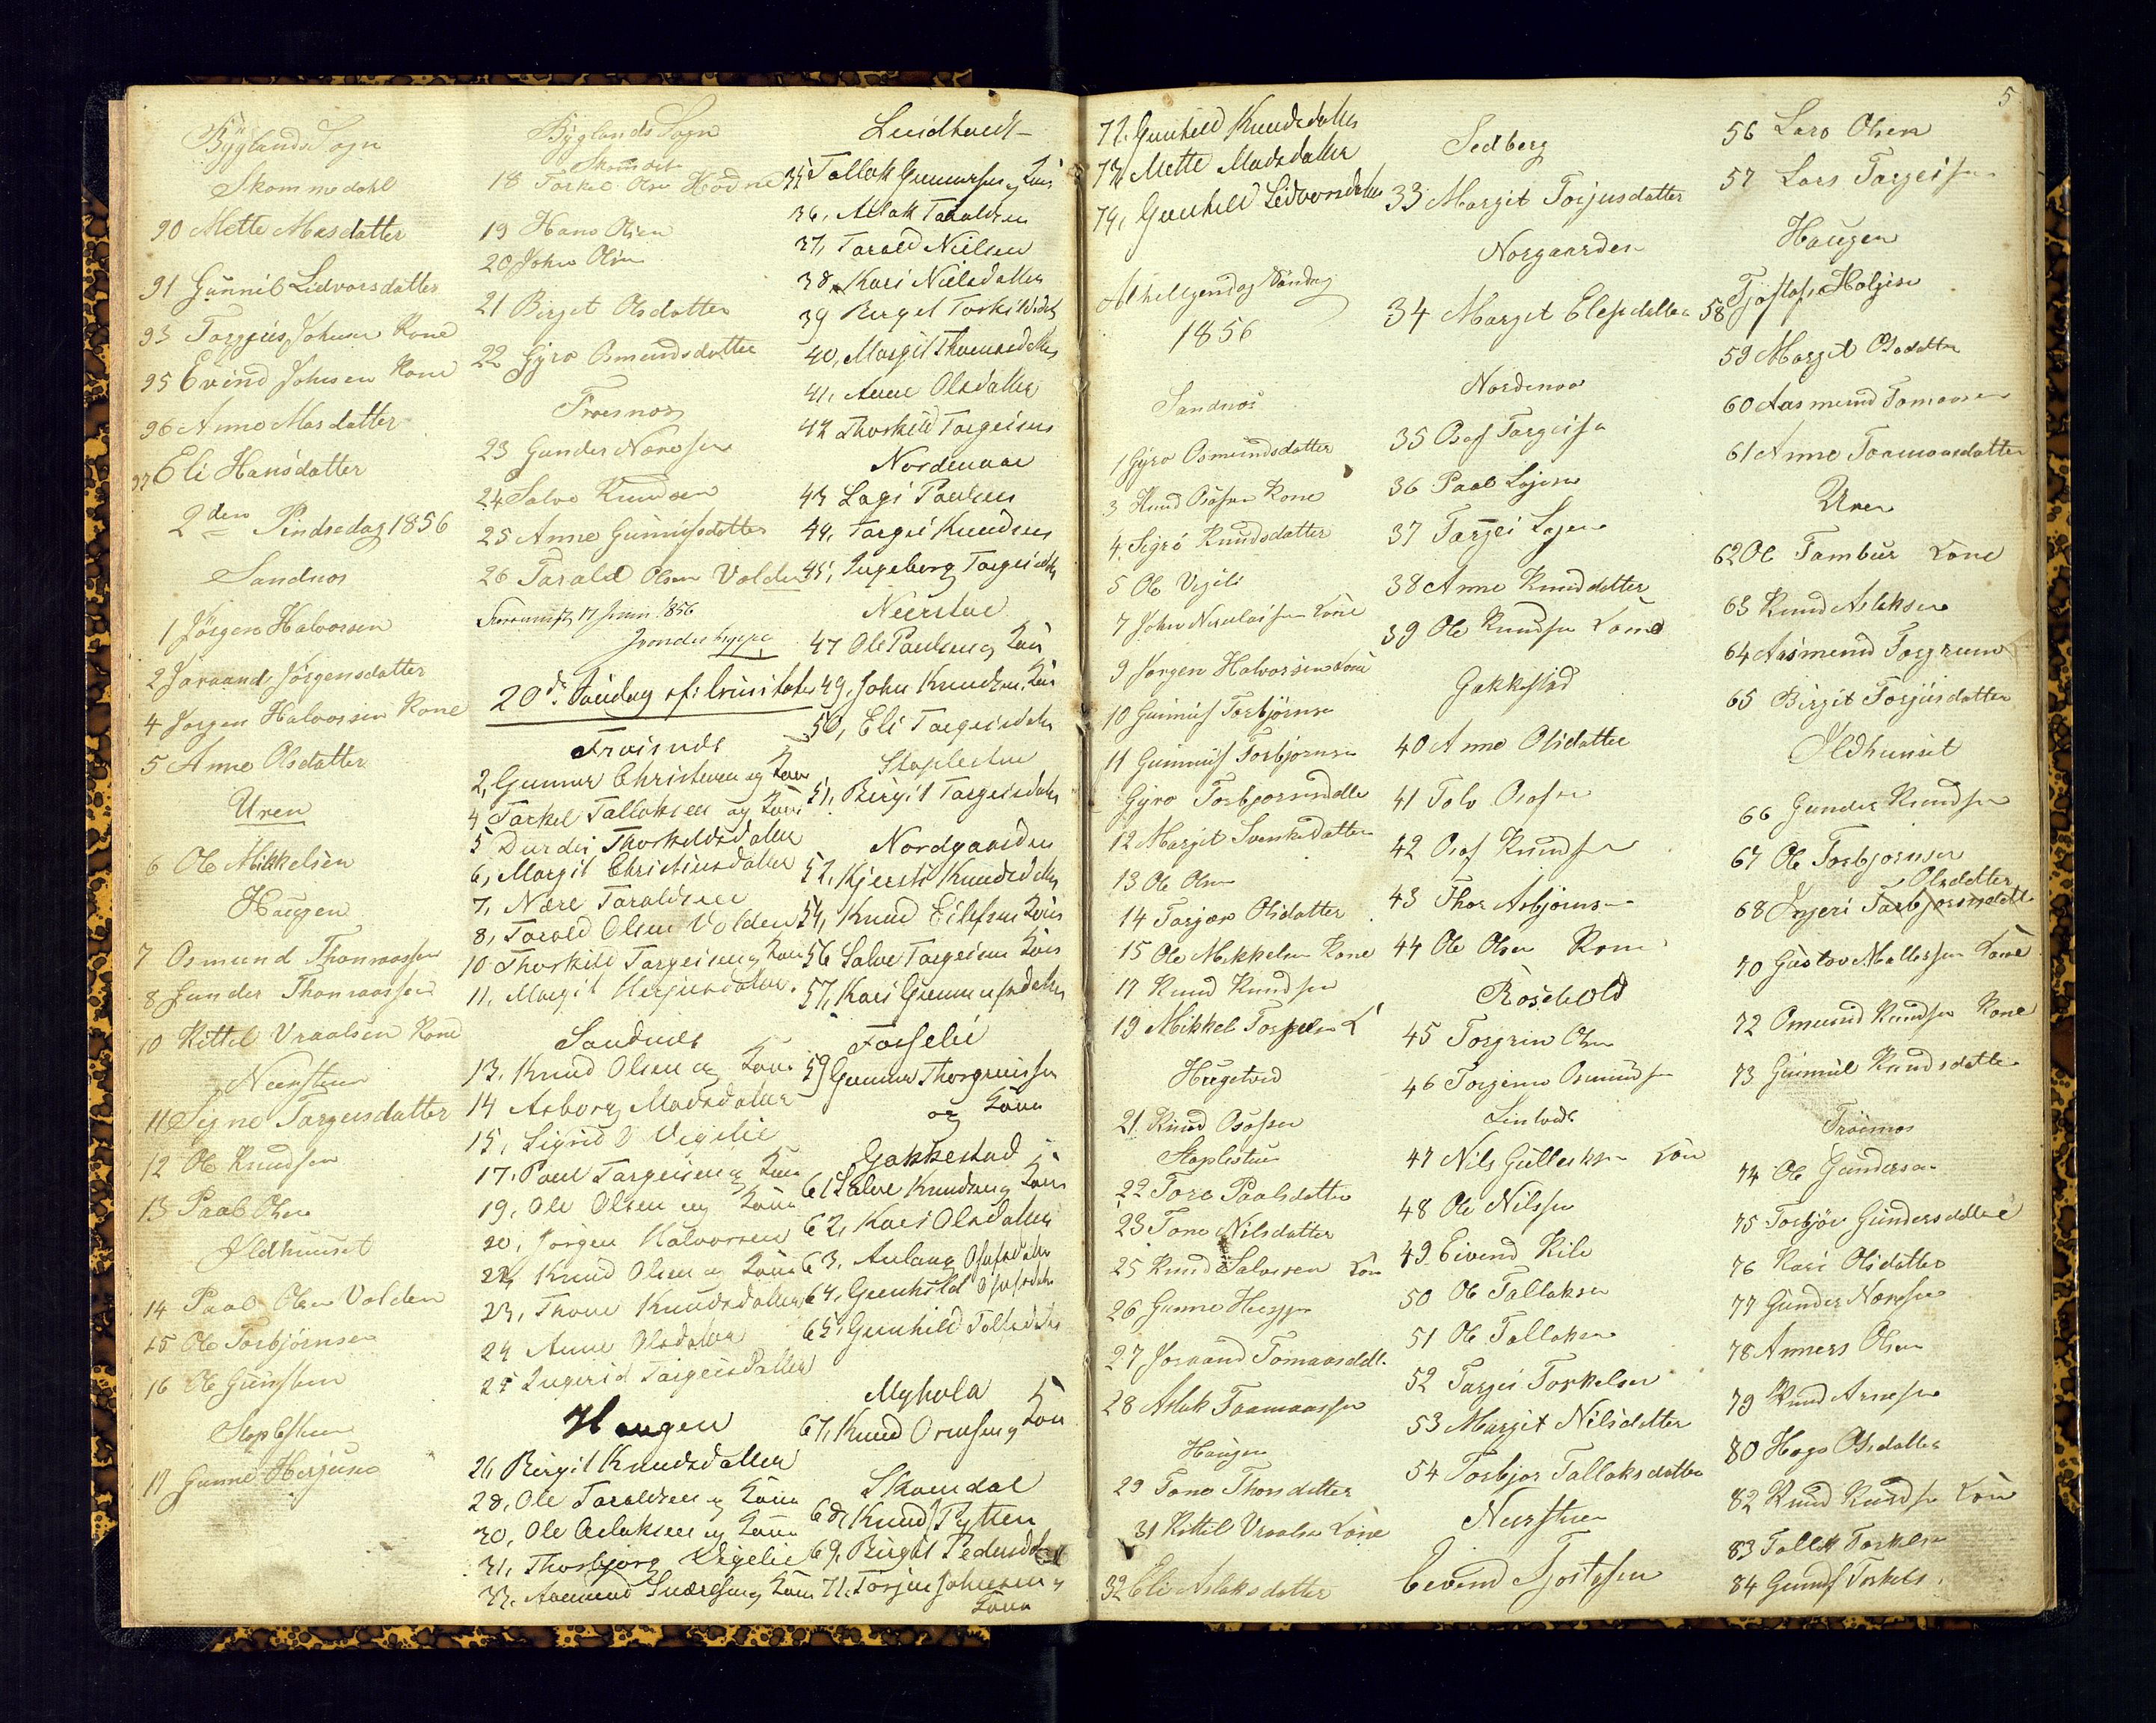 Byglands Sogn
Skommedahl
90 Mette Masdatter
91 Gunnil Lidvorsdatter
93 Torgjus Johnsen Kone
95 Evind Johnsen Kone
96 Anne Masdatter
97 Eli Hansdatter
2den Pindsedag 1856
Sandnos
1 Jörgen Halvorsen
2 Joraand Jörgensdatter
4 Jorgen Halvorsen Kone
5 Anne Olsdatter
Uren
6 Ole Mikkelsen
Haugen
7 Osmund Thommassen
8 Gunder Thommassen
10 Kittel Vraalsen Kone
Neerstuen
11 Signe Targeisdatter
12 Ole Knudsen
13 Paal Olsen
Ildhuuset
14 Paal Olsen Volden
15 Ole Torbjörnsen
16 Ole
Staplestuen
17 Gunne Herjusd
Byglands Sogn
18 Torkel Olsen
19 Hans Olsen
20 John Olsen
21 Birgit Olsdatter
22 Gyro Osmundsdatter
Froisnos
23 Gunder Næresen
24 Salve Knudsen
25 Anne
26 Tarald Olsen Volden
17 Juni 1856
20de Søndag ef: trinitatis
Froisnes
2, Gunnar Christensen og Kone
4 Torkel Tallaksen og Kone
5 Durdei Thorkildsdatter
6, Margit Christensdatter
7, Nære Taraldsen
8, Tarald Olsen Volden
10 Thorkild Targeisen og Kone
11, Margit Herjusdatter
Sandnes
13, Knud Olsen og Kone
14 Asborg Madsdatter
15, Sigrid Vegelie
17, Paul Targeisen og Kone
19, Ole Olsen og Kone
20, Jörgen Halvorsen
22, Knud Olsen og Kone
23, Thone Knudsdatter
24 Anne Olsdatter
25 Ingerid Targeisdatter
Haugen
26, Birgit Knudsdatter
28, Ole Taraldsen og Kone
30, Ole Aslaksen og Kone
31, Thorbjorg Vegelie
33, Aamund og Kone
35 Tallak Gunnarsen og Kone
36, Aslak Taraldsen
37, Tarald Nielsen
38, Kari Nielsdatter
39 Birgit
40, Margit Thomasdatter
41, Anne Olsdatter
42 Thorkild Targeisen
Nordenaae
43 Lagi Paulsen
44, Targei Knudsen
45, Ingeborg Targeisdatter
Neerstue
47 Ole Paulsen og Kone
49, John Knudsen, Kone
50, Eli Targeisdatter
Staplestue
51, Birgit Targeisdatter
Nordgaarden
52, Kjersti Knudsdatter
54, Knud Eilefsen Kone
56 Salve Targeisen Kone
57, Kari Gunnufsdatter
59 Gunnar Thorgrimsen
og Kone
Gakkestad
61 Salve Knudsen og Kone
62, Kari Olsdatter
63, Anlaug Osufsdatter
64, Gunhild Osufsdatter
65, Gunhild
Myhola
67, Knud Ormsen og Kone
Skomdal
68, Knud Pytten
69, Birgit Pedersdatter
71, Torjus Johnsen og
Kone
72, Gunhild Knudsdatter
73, Mette Madsdatter
74, Gunhild Lidvorsdatter
1856
Sandnos
1 Gyro Osmundsdatter
3 Knud Osofsen Kone
4 Sigri Knudsdatter
5 Ole Vejeli
7 John Nicolaisen Kone
9 Jorgen Halvorsen Kone
10 Gunnuf Torbjørnsen
11 Gunnuf Torbjørnsen
Gyro Torbjornsdatter
12 Margit Svensdatter
13 Ole Olsen
14 Torjær Olsdatter
15 Ole Mikkelsen Kone
17 Knud Knudsen
19 Mikkel K
21 Knud Osofsen
Staplestuen
22 Tore Paalsdatter
23 Tone Nilsdatter
25 Knud Salvesen Kone
26 Gunne
27 Joraand Tomaasdatter
28 Aslak Taamaassen
Haugen
29 Tone Thorsdatter
31 Kittil Vraalsen Kone
32 Eli Aslaksdatter
Sedberg
33 Margit Torjusdatter
Norgaarden
34 Margit
Nordenaa
35 Osof Targeisen
36 Paal Lejesen
37 Targei
38 Anne Knudsdatter
39 Ole Knudsen Kone
Gakkestad
40 Anne Olsdatter
41 Tolv Osofsen
42 Osof Knudsen
43 Thor Asbjørnsen
44 Ole Olsen Kone
45 Torgrim Olsen
46 Torgrim Osmundsen
47 Nils Kone
48 Ole Nilsen
49 Eivend Kile
50 Ole Tallaksen
51 Ole Tallaksen
52 Targei Torkelsen
53 Margit Nilsdatter
54 Torbjor Tallaksdatter
Nerstuen
Eevend Tjostofsen
5
56 Lars Olsen
57 Lars Targeisen
Haugen
58 Tjostof Holjesen
59 Margit Olsdatter
60 Aasmund Tomaasen
61 Anne Toamaasdatter
Uren
62 Ole Tambur Kone
63 Knud Aslaksen
64 Aasmund Torgrimsen
65 Birgit Torjusdatter
Ildhuuset
66 Gunder Knudsen
67 Ole Torbjornsen
Olsdatter
68 Ingeri Torbjornsdatter
70 Gustav Kone
72 Omund Knudsen Kone
73 Gunnil Knudsdatter
Froisnos
74 Ole Gundersen
75 Torbjør Gundersdatter
76 Kari Olsdatter
77 Gunder Næresen
78 Anners Olsen
79 Knud Arnesen
80 Hæge Olsdatter
82 Knud Knudsen Kone
83 Tallak Torkelsen
84 Gunnuf Torkels